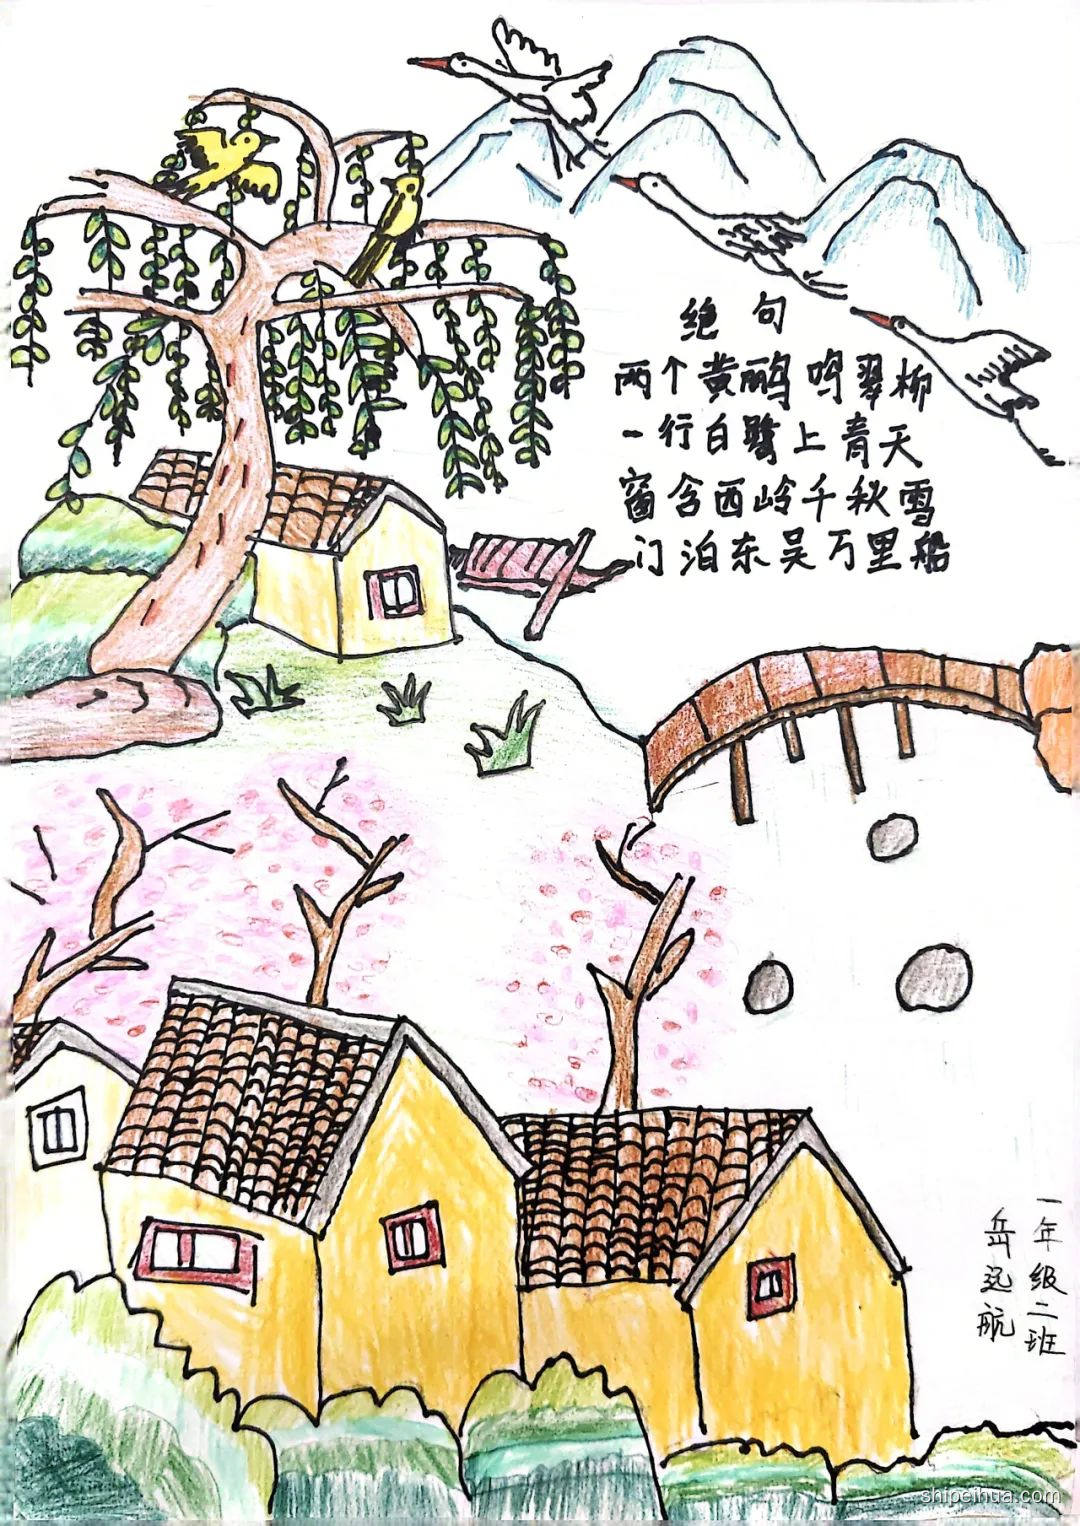 绝句
两个黄鹂鸣翠柳
一行白鹭上青天
窗含西岭千秋雪
门泊东吴万里船
一年级二班
岳远航
shipeihua.com